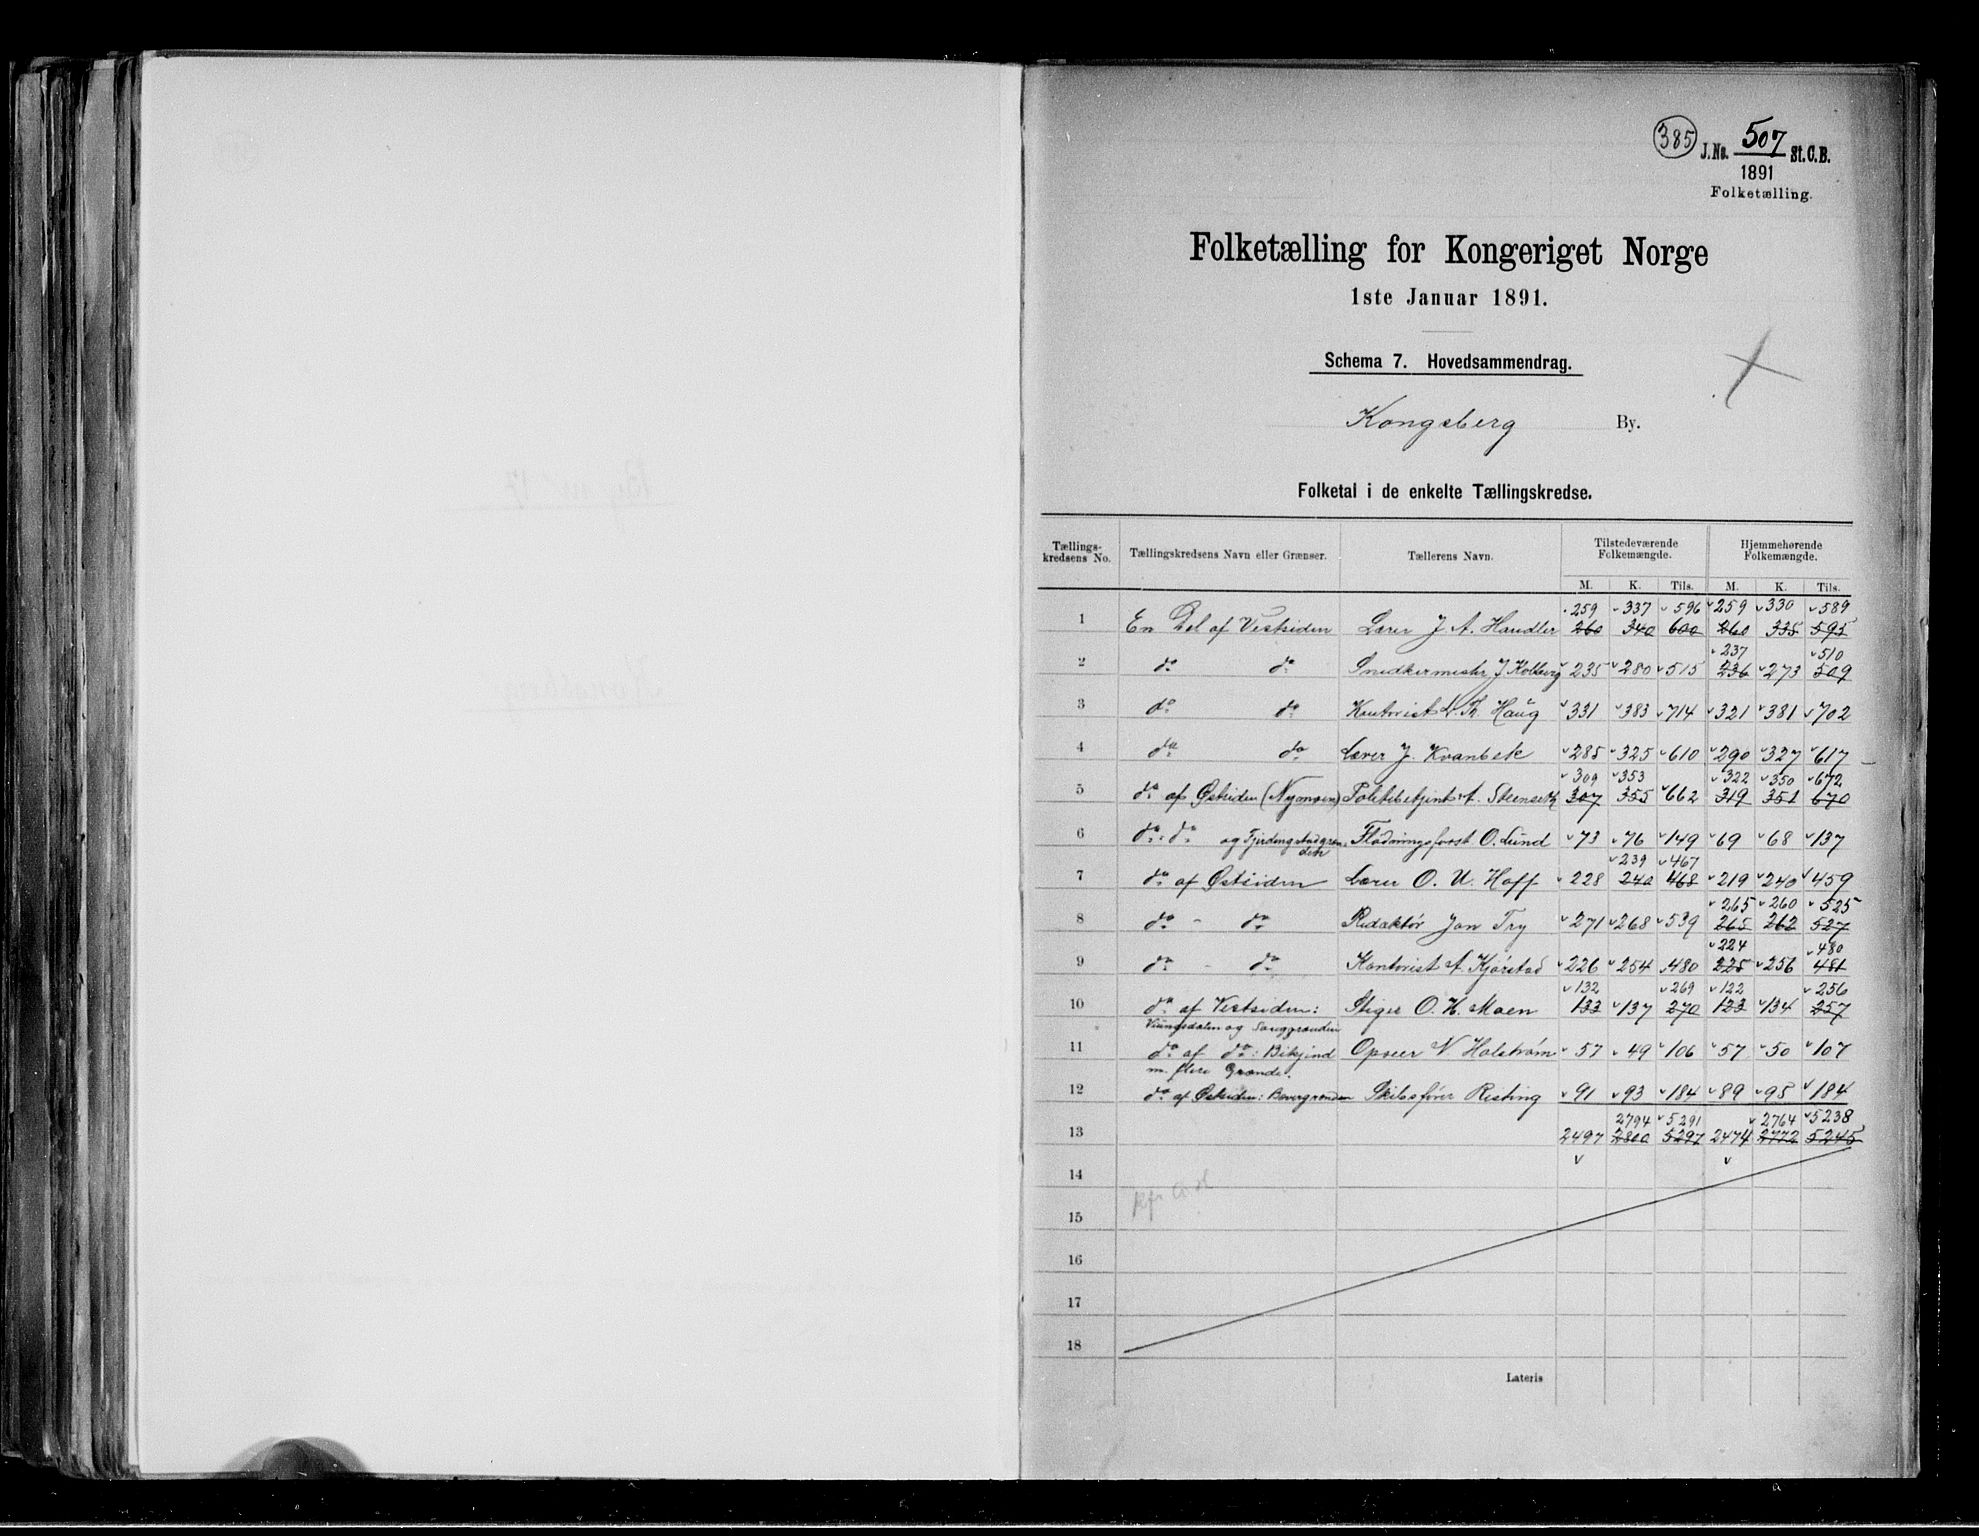 385 J.No. 507 St.C.B.
1891
Folketælling.
Folketælling for Kongeriget Norge
1ste Januar 1891.
Schema 7. Hovedsammendrag.
Kongsberg By.
Folketal i de enkelte Tællingskredse.
Tællings-kredsens No. Tællingskredsens Navn eller Grænser. Tællerens Navn. Tilstedeværende Folkemængde. Hjemmehørende Folkemængde.
M. K. Tils. M. K. Tils.
259 337 596 259 330 589
1 En Del af Vestsiden Lærer J. A. Handler 260 340 600 260 335 595
237 510
2 do do Snedkermester J Kolberg 235 280 515 236 273 509
3 do do Kontorist L. Th. Haug 331 383 714 321 381 702
4 do do Lærer J. Kvanbek 285 325 610 290 327 617
309 353 322 350 672
5 do af Østsiden (Nymoen) Politibetjent A. Steenseth 307 355 662 319 351 670
6 do do og Fjerdingstadgrænden Flødningsforst O. Lund 73 76 149 69 68 137
239 467
7 do af Østsiden Lærer O. U. Hoff 228 240 468 219 240 459
265 260 525
8 do - do Redaktør Jon Try 271 268 539 265 262 527
224 480
9 do - do Kontorist A. Kjørstad 226 254 480 225 256 481
132 269 122 256
10 do af Vestsiden: Stiger O. H. Moen 133 137 270 123 134 257
11 do af do: Bikjend Opseer N. Holstrøm 57 49 106 57 50 107
m. flere Grænde.
12 do af Østsiden: Bævergrænden Skibsfører Risting 91 93 184 89 95 184
2794 5291 2764 5238
13 2497 2800 5297 2474 2772 5245
14
15
16
17
18
Lateris